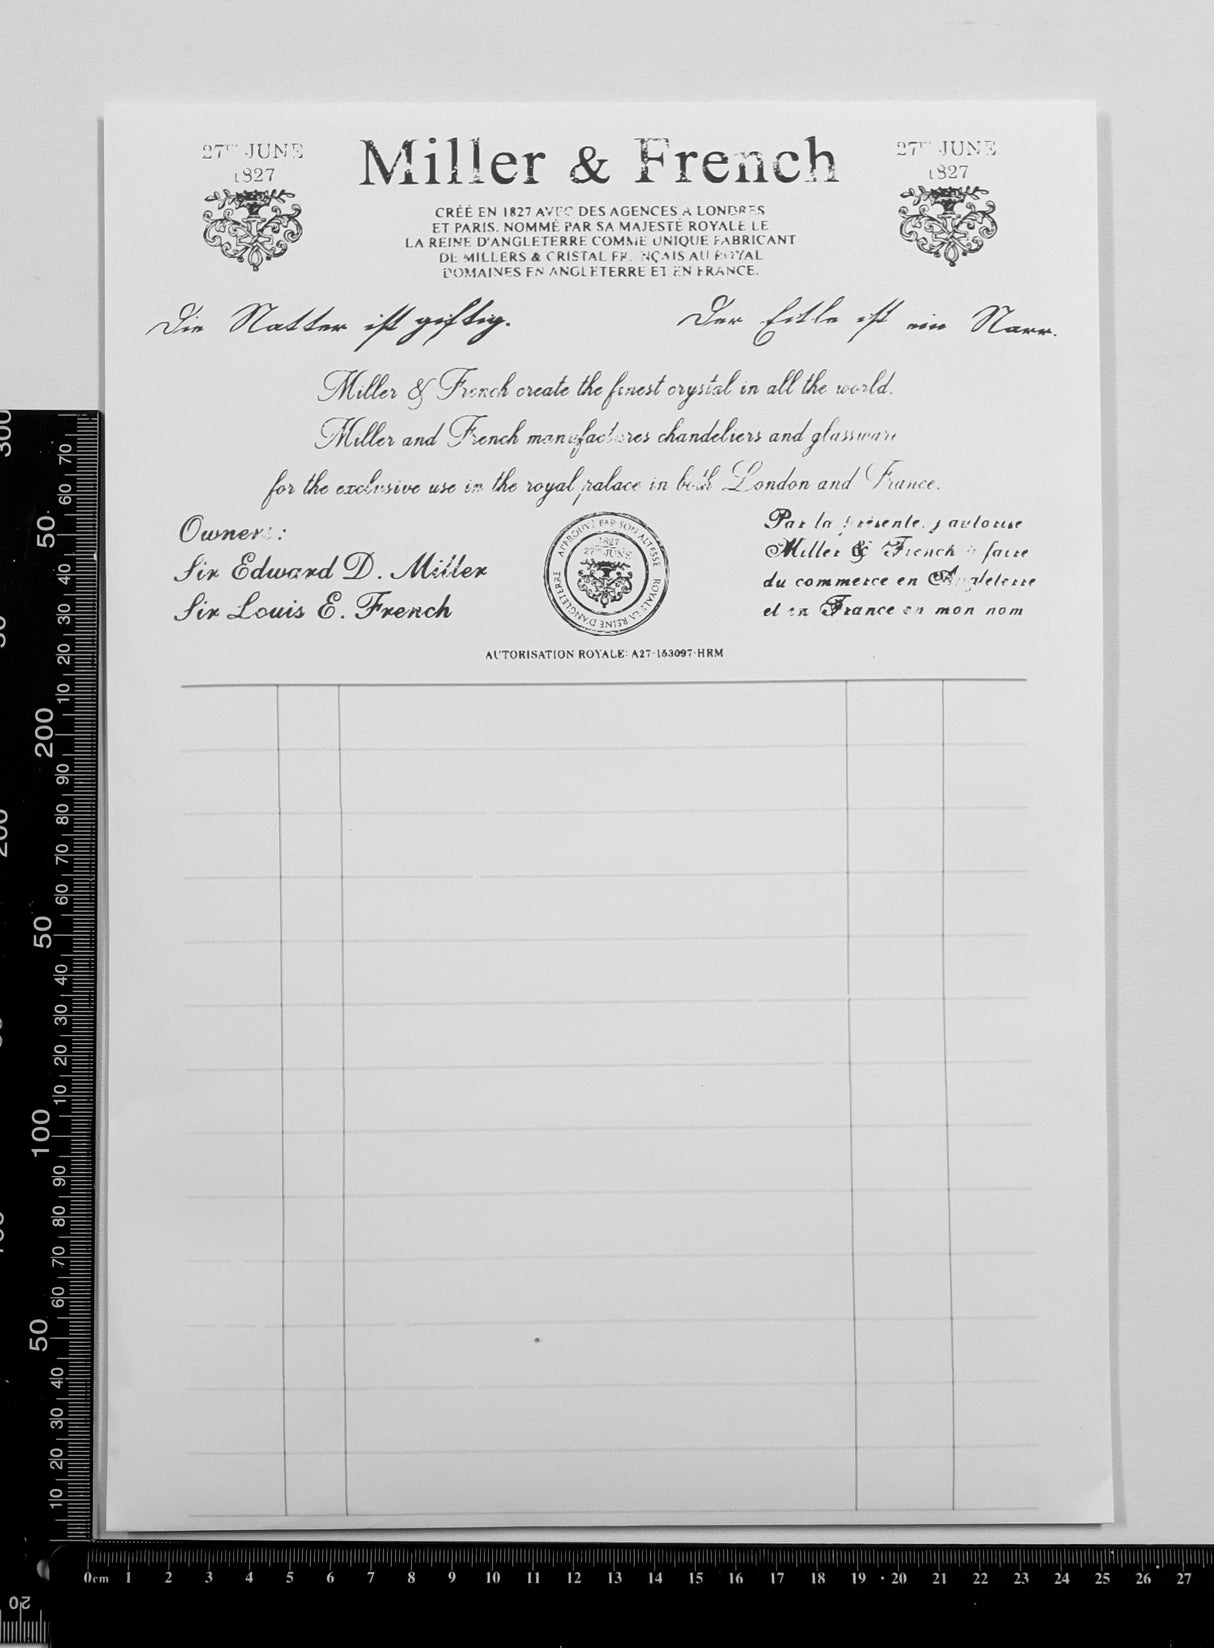 27TH JUNE
1827
Miller & French
27TH JUNE
1827
CRÉÉ EN 1827 AVEC DES AGENCES A LONDRES
ET PARIS. NOMMÉ PAR SA MAJESTÉ ROYALE LE
LA REINE D'ANGLETERRE COMME UNIQUE FABRICANT
DE MILLERS & CRISTAL FRANÇAIS AU ROYAL
DOMAINES EN ANGLETERRE ET EN FRANCE.
Die Natter ist giftig.
Der Eitle ist ein Narr.
Miller & French create the finest crystal in all the world.
Miller and French manufactures chandeliers and glassware
for the exclusive use in the royal palace in both London and France.
Owners:
Sir Edward D. Miller
Sir Louis E. French
APPROUVÉ PAR SON ALTESSE ROYALE LA REINE D'ANGLETERRE
1827
27TH JUNE
Par la présente, j autorise
Miller & French à faire
du commerce en Angleterre
et en France en mon nom
AUTORISATION ROYALE: A27-153097-HRM
300
70
60
50
40
30
20
10
200
90
80
70
60
50
40
30
20
10
100
90
80
70
60
50
40
30
20
10
0cm 1 2 3 4 5 6 7 8 9 10 11 12 13 14 15 16 17 18 19 20 21 22 23 24 25 26 27
20